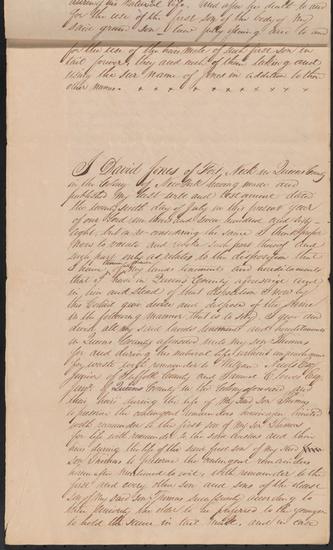 during his natural life. And after his death to and
for the use of the first son of the body of my
said grand son law fully
for the use of the heirs male of such first son in
tail forever, they and each of them taking and
using the Sur Name of Jones in addition to their
other names.
I David Jones of Fort Neck in Queens County
in the Colony of New York having made and
published my last will and testament dated
the twenty sixth day of July in this present year
of our Lord one thousand seven hundred and fifty
eight, but on re-considering the same I think proper
now to revoke and make such part thereof and
such part only as relates to the disposition that
I have of my lands tenements and hereditaments
that I have in Queens County aforesaid and
in lieu and stead of the I now by
this Codicil give devise and dispose of the same
in the following manner that is to say. I give and
devise all my said lands tenements and hereditaments
in Queens County aforesaid unto my son Thomas
for and during his natural life without impeachment
for waste with remainder to William Nicoll Esqr
Junior of Suffolk County and
of Queens County in the Colony aforesaid and
their heirs during the life of my said son Thomas
to preserve the contingent remainders hereinafter limited
with remainder to the first son of my son Thomas
for life with remainder to the said and their
heirs during the life of the said first son of my said
son Thomas to preserve the contingent remainders
with remainder to the
first and every other son and sons of the
son of my said son Thomas successively according to
their seniority the elder to be preferred to the younger
to hold the same in tail male, and in case